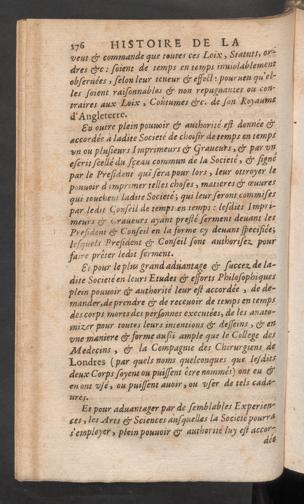 176 HISTOIRE DE LA
veut & commande que toutes ces Loix, Statuts, or-
dres &c: soient de temps en temps inuiolablement
obseruées, selon leur teneur & effect: pourueu qu'el-
les soient raisonnables & non repugnantes ou con-
traires aux Loix, Coûtumes &c. de son Royaume
d'Angleterre.
En outre plein pouuoir & authorité est donnée &
accordée à ladite Societé de choisir de temps en temps
vn ou plusieurs Imprimeurs & Graueurs, & par vn
escrit seellé du sçeau commun de la Societé, & signé
par le President qui sera pour lors, leur otroyer le
pouuoir d'imprimer telles choses, matieres & œuures
qui touchent ladite Societé, qui leur seront commises
par ledit Conseil de temps en temps: lesdits Impri-
meurs & Graueurs ayant presté serment deuant les
President & Conseil en la forme cy deuant specifiée;
lesquels President & Conseil sont authorisez pour
faire préter ledit serment.
Et pour le plus grand aduantage & succez de la-
dite Societé en leurs Etudes & efforts Philosophiques
plein pouuoir & authorité leur est accordée, de de-
mander, de prendre & de receuoir de temps en temps
des corps morts des personnes executées, de les anato-
mizer pour toutes leurs intentions & desseins, & en
vne maniere & forme aussi ample que le College des
Medecins, & la Compagnie des Chirurgiens de
Londres (par quels noms quelconques que lesdits
deux Corps soyent ou puissent être nommés) ont eu &
en ont vsé, ou puissent auoir, ou vser de tels cada-
ures.
Et pour aduantager par de semblables Experien-
ces, les Arts & Sciences ausquelles la Societé pourra
s'employer, plein pouuoir & authorité luy est accor-
dée